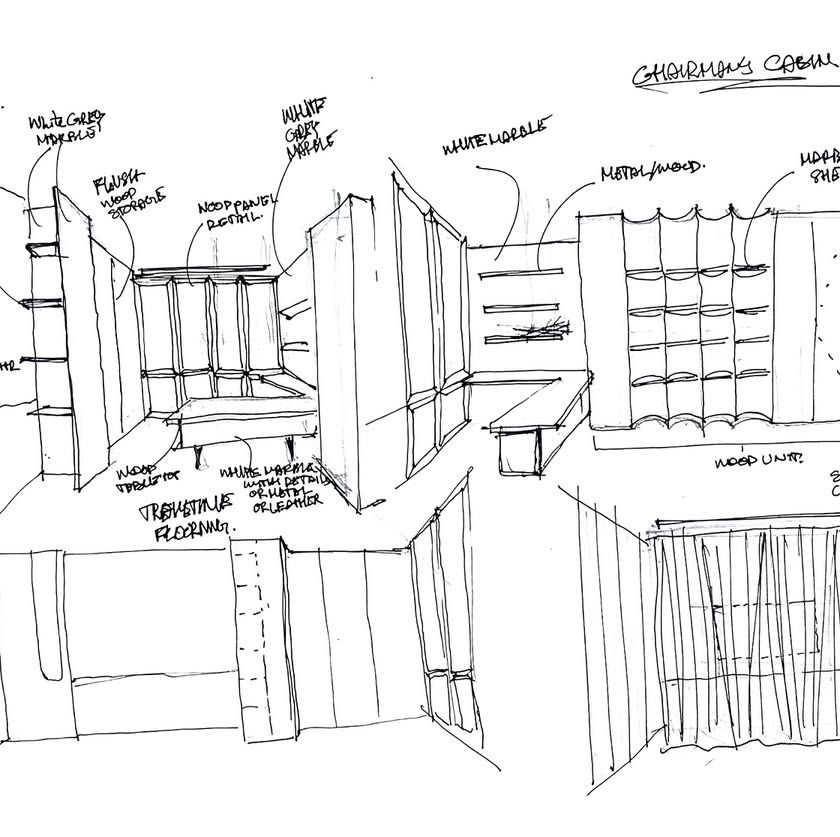 CHAIRMANS CABIN
White GREY
MARBLE
WHITE
GREY
MARBLE
WHITE MARBLE
METAL/WOOD.
FLUSH
WOOD
STORAGE
WOOD PANEL
DETAIL.
WOOD
TABLE TOP
WHITE MARBLE
WITH DETAILS
OR METAL
OR LEATHER
FLOORING.
WOOD UNIT.